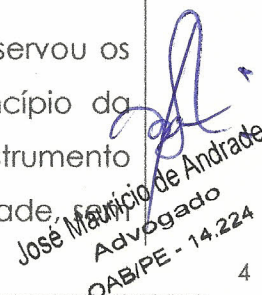 servou os
ncípio da
strumento
ade, sem
José Maurício de Andrade
Advogado
OAB/PE - 14.224
4